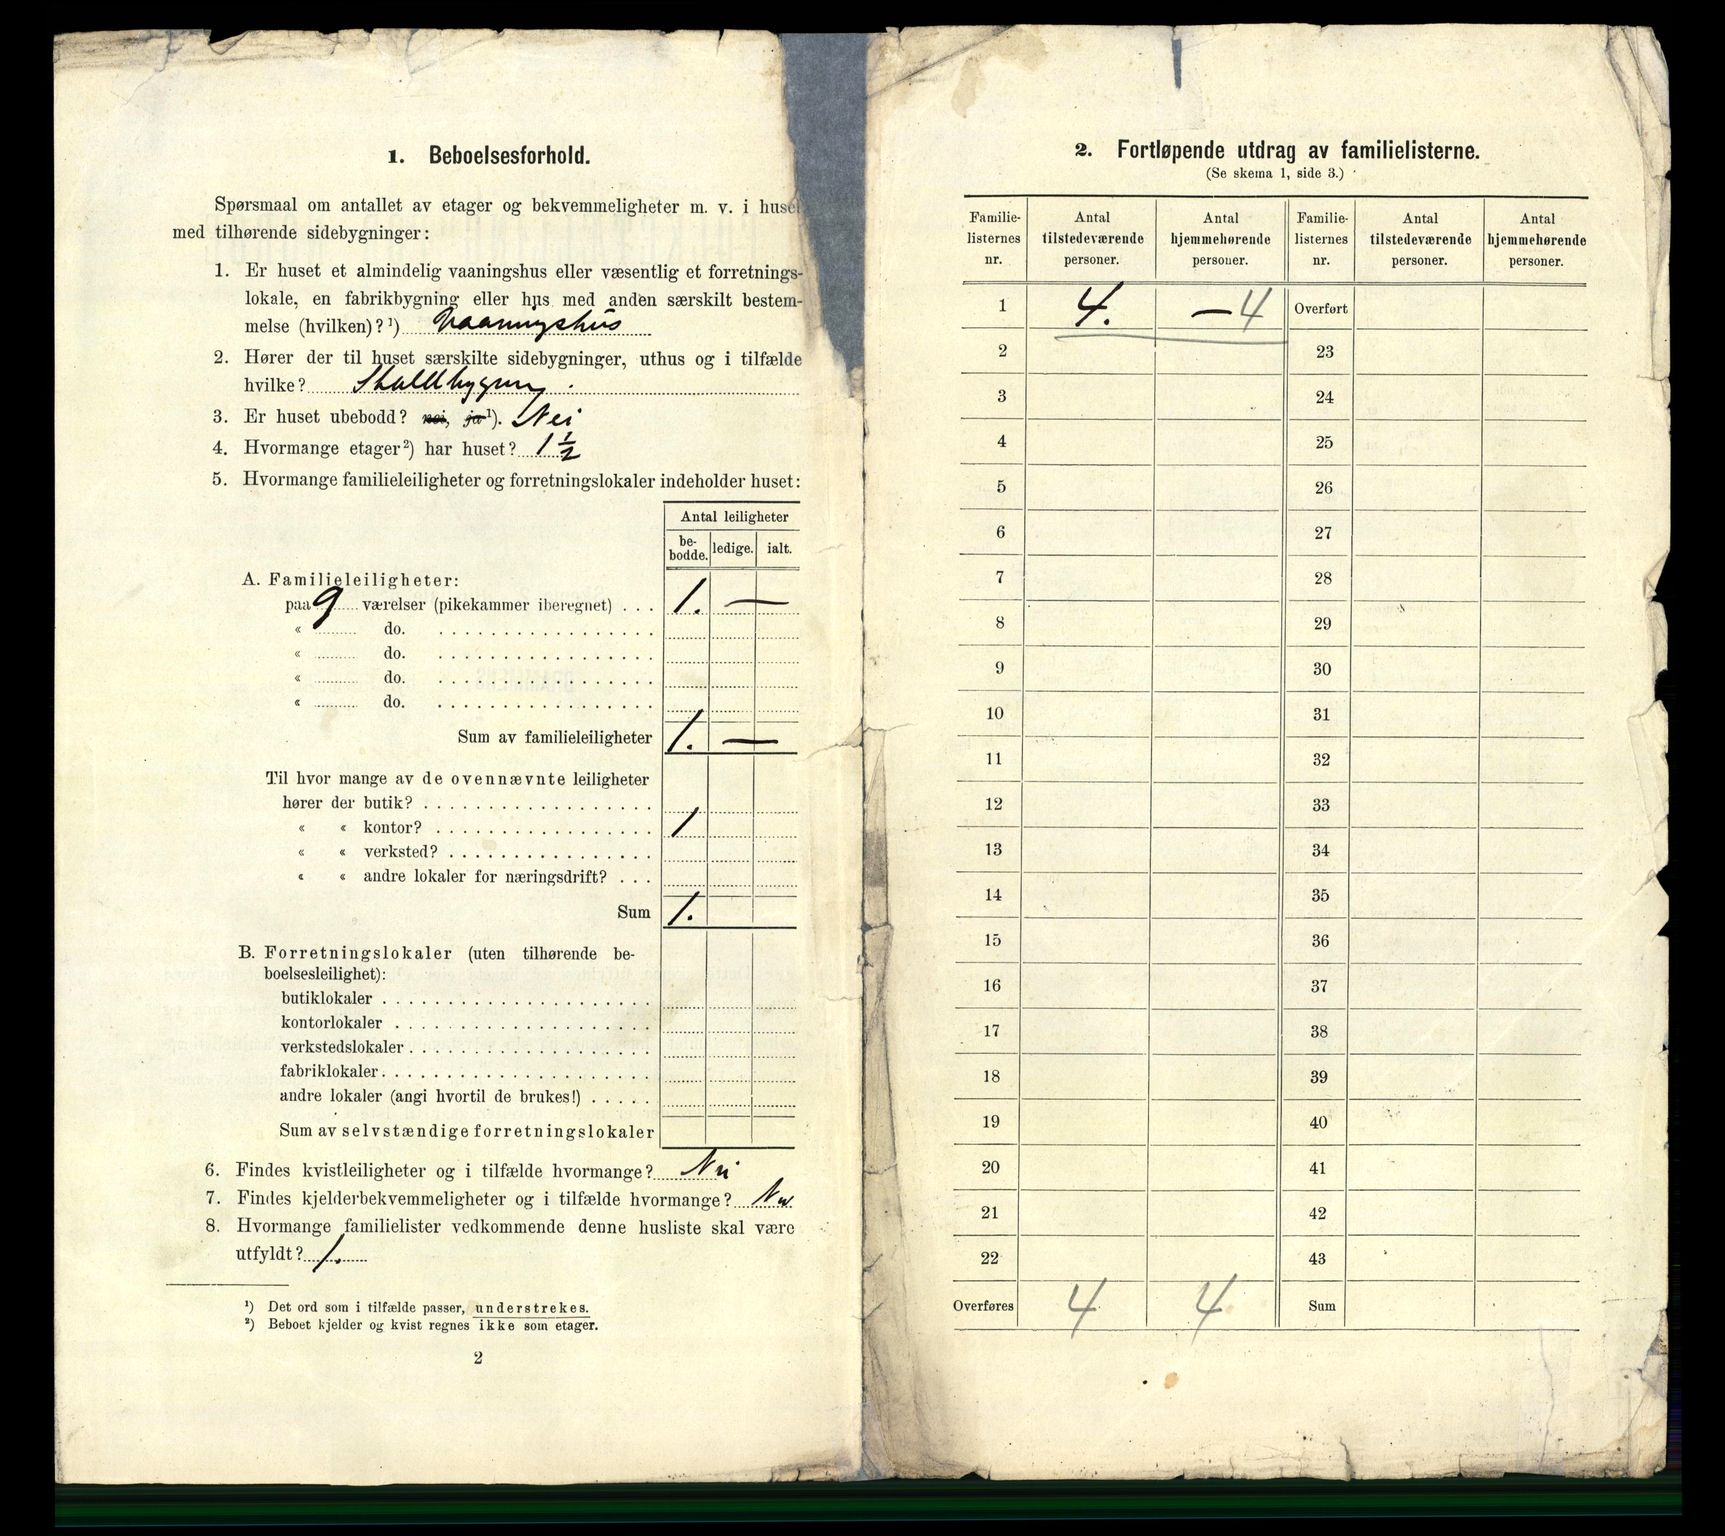 1. Beboelsesforhold.
Spørsmaal om antallet av etager og bekvemmeligheter m. v. i huset
med tilhørende sidebygninger:
1. Er huset et almindelig vaaningshus eller væsentlig et forretnings-
lokale, en fabrikbygning eller hus med anden særskilt bestem-
melse (hvilken)? ¹) Vaaningshus
2. Hører der til huset særskilte sidebygninger, uthus og i tilfælde
hvilke? Staldbygning.
3. Er huset ubebodd? nei, ja ¹). Nei
4. Hvormange etager ²) har huset? 1 ½
5. Hvormange familieleiligheter og forretningslokaler indeholder huset:
Antal leiligheter
be-
bodde. ledige. ialt.
A. Familieleiligheter:
paa 9 værelser (pikekammer iberegnet) . . . 1. —
« do.
« do.
« do.
« do.
Sum av familieleiligheter 1. —
Til hvor mange av de ovennævnte leiligheter
hører der butik?
« « kontor? 1
« « verksted?
« « andre lokaler for næringsdrift? . . .
Sum 1.
B. Forretningslokaler (uten tilhørende be-
boelsesleilighet):
butiklokaler
kontorlokaler
verkstedslokaler
fabriklokaler
andre lokaler (angi hvortil de brukes!)
Sum av selvstændige forretningslokaler
6. Findes kvistleiligheter og i tilfælde hvormange? Nei
7. Findes kjelderbekvemmeligheter og i tilfælde hvormange? Nei
8. Hvormange familielister vedkommende denne husliste skal være
utfyldt? 1.
¹) Det ord som i tilfælde passer, understrekes.
²) Beboet kjelder og kvist regnes ikke som etager.
2
2. Fortløpende utdrag av familielisterne.
(Se skema 1, side 3.)
Familie- Antal Antal Familie- Antal Antal
listernes tilstedeværende hjemmehørende listernes tilstedeværende hjemmehørende
nr. personer. personer. nr. personer. personer.
1 4. — 4 Overført
2 23
3 24
4 25
5 26
6 27
7 28
8 29
9 30
10 31
11 32
12 33
13 34
14 35
15 36
16 37
17 38
18 39
19 40
20 41
21 42
22 43
Overføres 4 4 Sum